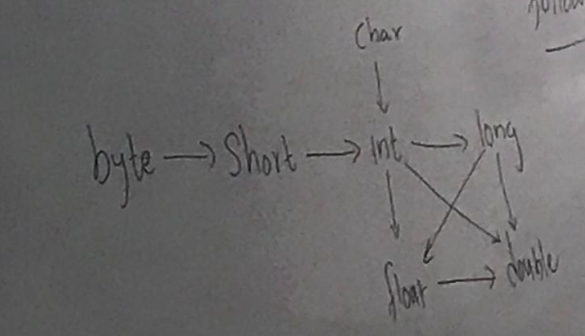 Char
byte → Short → Int → long
float → double